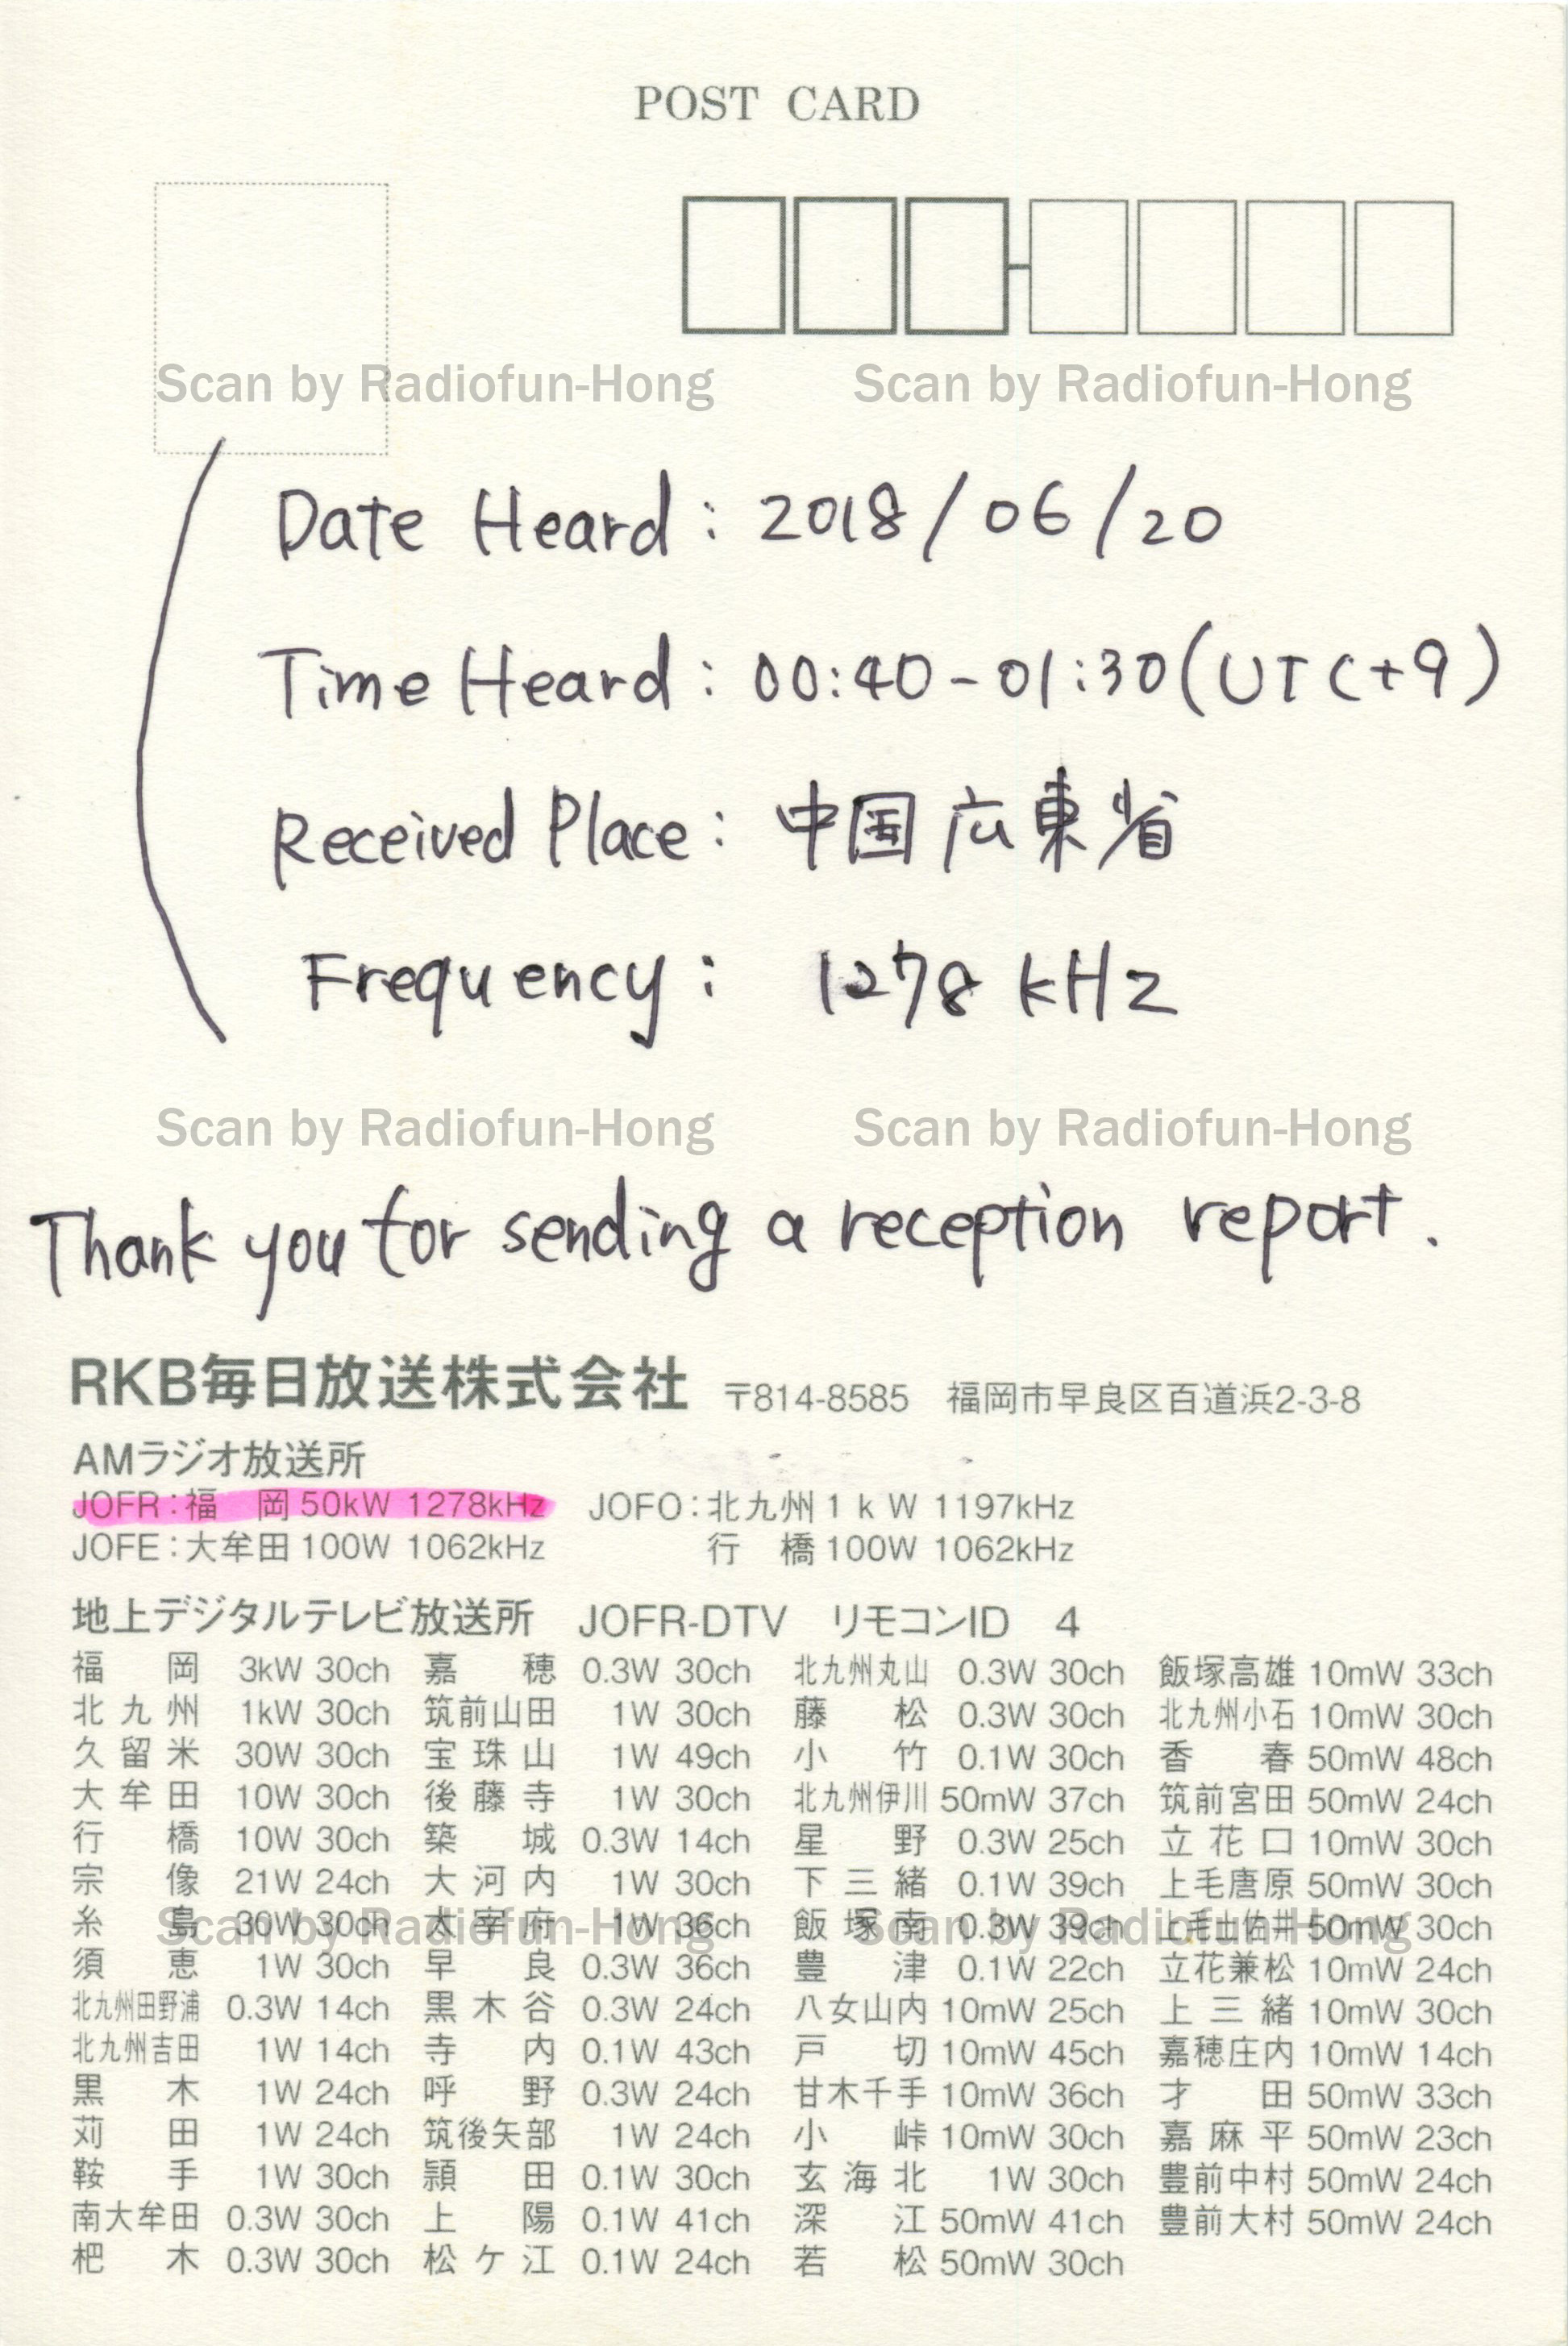 POST CARD
Scan by Radiofun-Hong Scan by Radiofun-Hong
Date Heard: 2018/06/20
Time Heard: 00:40-01:30(UTC+9)
Received Place: 中国広東省
Frequency: 1278 kHz
Scan by Radiofun-Hong Scan by Radiofun-Hong
Thank you for sending a reception report.
RKB毎日放送株式会社 〒814-8585 福岡市早良区百道浜2-3-8
AMラジオ放送所
JOFR:福岡 50kW 1278kHz JOFO:北九州 1kW 1197kHz
JOFE:大牟田 100W 1062kHz 行橋 100W 1062kHz
地上デジタルテレビ放送所 JOFR-DTV リモコンID 4
福岡 3kW 30ch 嘉穂 0.3W 30ch 北九州丸山 0.3W 30ch 飯塚高雄 10mW 33ch
北九州 1kW 30ch 筑前山田 1W 30ch 藤松 0.3W 30ch 北九州小石 10mW 30ch
久留米 30W 30ch 宝珠山 1W 49ch 小竹 0.1W 30ch 香春 50mW 48ch
大牟田 10W 30ch 後藤寺 1W 30ch 北九州伊川 50mW 37ch 筑前宮田 50mW 24ch
行橋 10W 30ch 築城 0.3W 14ch 星野 0.3W 25ch 立花口 10mW 30ch
宗像 21W 24ch 大河内 1W 30ch 下三緒 0.1W 39ch 上毛唐原 50mW 30ch
糸島 30W 30ch 太宰府 1W 36ch 飯塚南 0.3W 39ch 上毛土佐井 50mW 30ch
Scan by Radiofun-Hong Scan by Radiofun-Hong
須恵 1W 30ch 早良 0.3W 36ch 豊津 0.1W 22ch 立花兼松 10mW 24ch
北九州田野浦 0.3W 14ch 黒木谷 0.3W 24ch 八女山内 10mW 25ch 上三緒 10mW 30ch
北九州吉田 1W 14ch 寺内 0.1W 43ch 戸切 10mW 45ch 嘉穂庄内 10mW 14ch
黒木 1W 24ch 呼野 0.3W 24ch 甘木千手 10mW 36ch 才田 50mW 33ch
苅田 1W 24ch 筑後矢部 1W 24ch 小峠 10mW 30ch 嘉麻平 50mW 23ch
鞍手 1W 30ch 頴田 0.1W 30ch 玄海北 1W 30ch 豊前中村 50mW 24ch
南大牟田 0.3W 30ch 上陽 0.1W 41ch 深江 50mW 41ch 豊前大村 50mW 24ch
杷木 0.3W 30ch 松ケ江 0.1W 24ch 若松 50mW 30ch